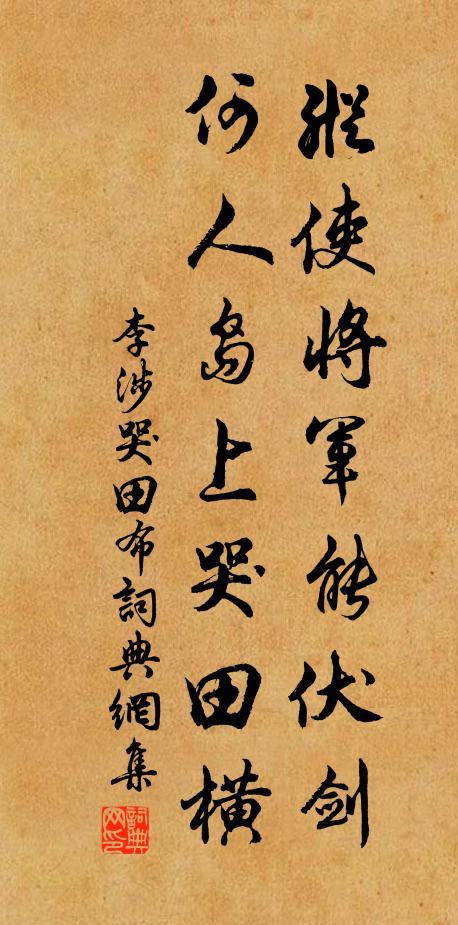 縱使將軍能伏劍
何人島上哭田橫
李涉哭田布詞典網集
詞典网印